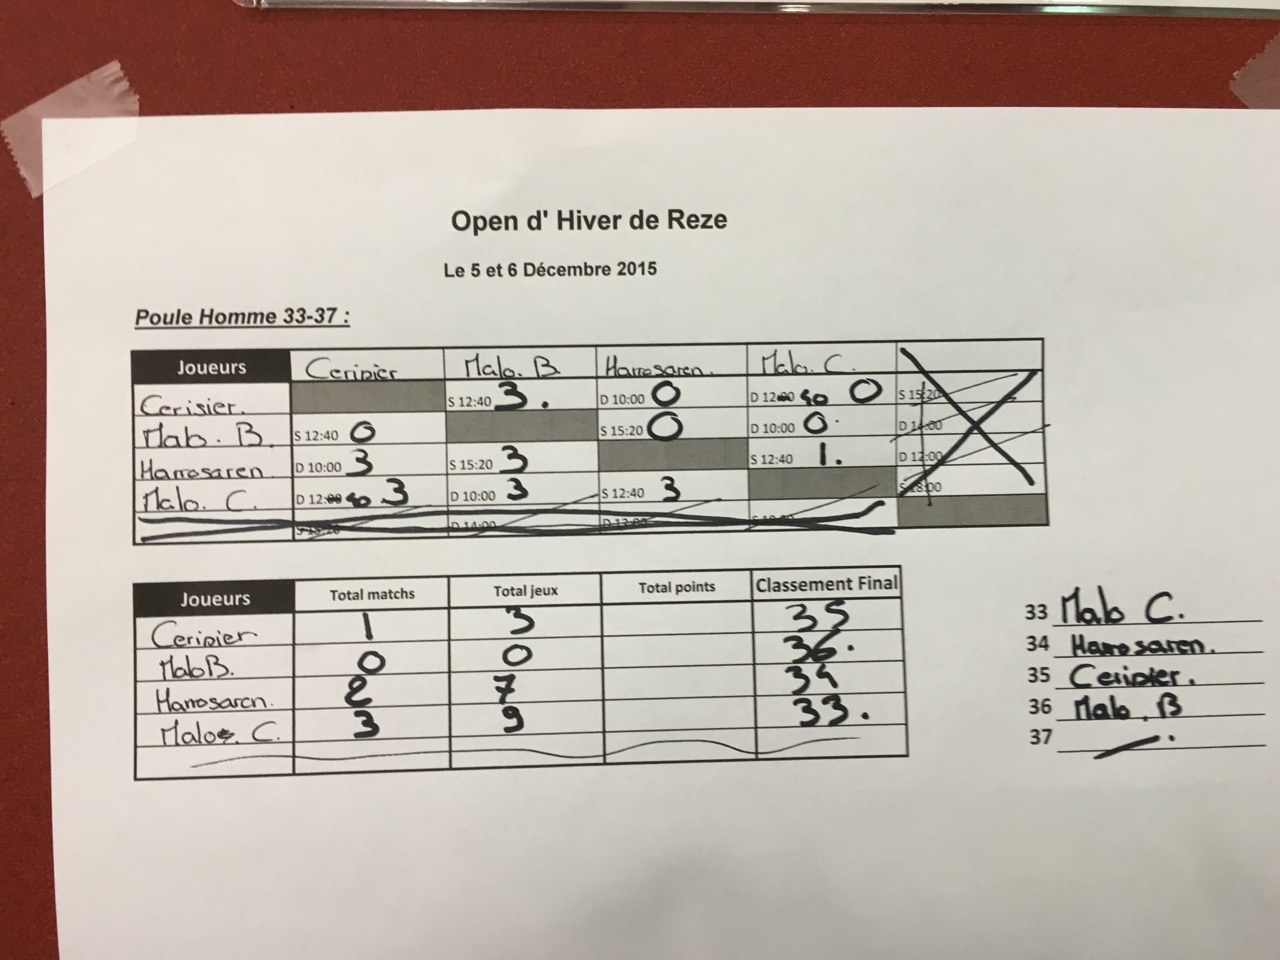 Open d' Hiver de Reze
Le 5 et 6 Décembre 2015
Poule Homme 33-37 :
Joueurs Ceripier Malo. B. Harrosaren. Malo. C.
Cerisier. S 12:40 3. D 10:00 0 D 12:00 40 0 S 15:20
Malo. B. S 12:40 0 S 15:20 0 D 10:00 0. D 14:00
Harrosaren D 10:00 3 S 15:20 3 S 12:40 1. D 12:00
Malo. C. D 12:00 40 3 D 10:00 3 S 12:40 3 S 18:00
S 15:20 D 14:00 D 12:00 S 18:00
Joueurs Total matchs Total jeux Total points Classement Final
Ceripier 1 3 35
Malo B. 0 0 36.
Harrosaren. 2 7 34
Malo. C. 3 9 33.
33 Malo C.
34 Harrosaren.
35 Ceripier.
36 Malo. B
37